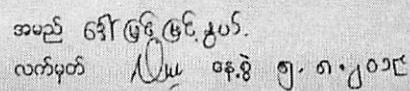 အမည် ဒေါ်မြင့်မြင့်နွယ်
လက်မှတ် နေ့စွဲ ၅.၈.၂၀၁၉